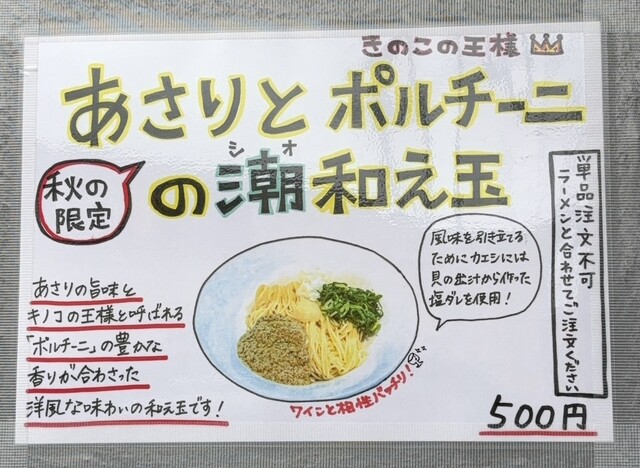 きのこの王様
あさりとポルチーニ
の潮和え玉
シオ
秋の
限定
単品注文不可
ラーメンと合わせてご注文ください
風味を引き立てる
ためにカエシには
貝の出汁から作った
塩ダレを使用！
あさりの旨味と
キノコの王様と呼ばれる
「ポルチーニ」の豊かな
香りが合わさった
洋風な味わいの和え玉です！
ワインと相性バッチリ！
500円